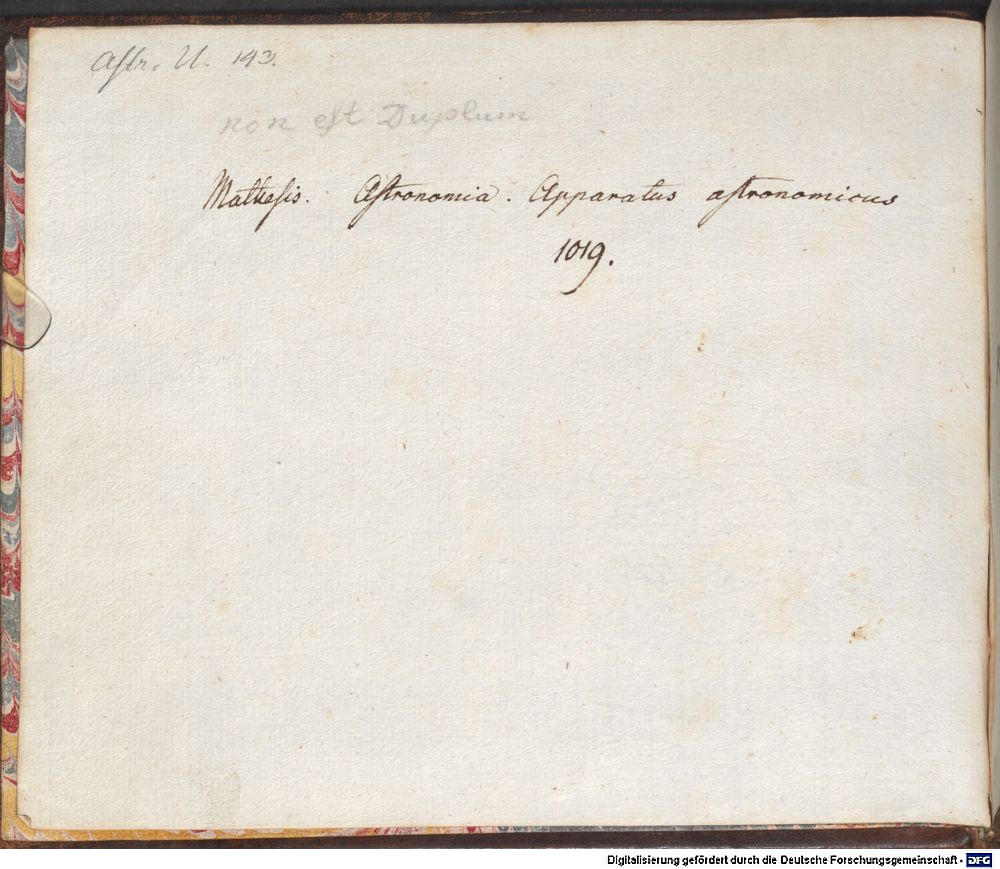 Astr. U. 143.
non est Duplum
Mathesis. Astronomia. Apparatus astronomicus
1019.
Digitalisierung gefördert durch die Deutsche Forschungsgemeinschaft - DFG